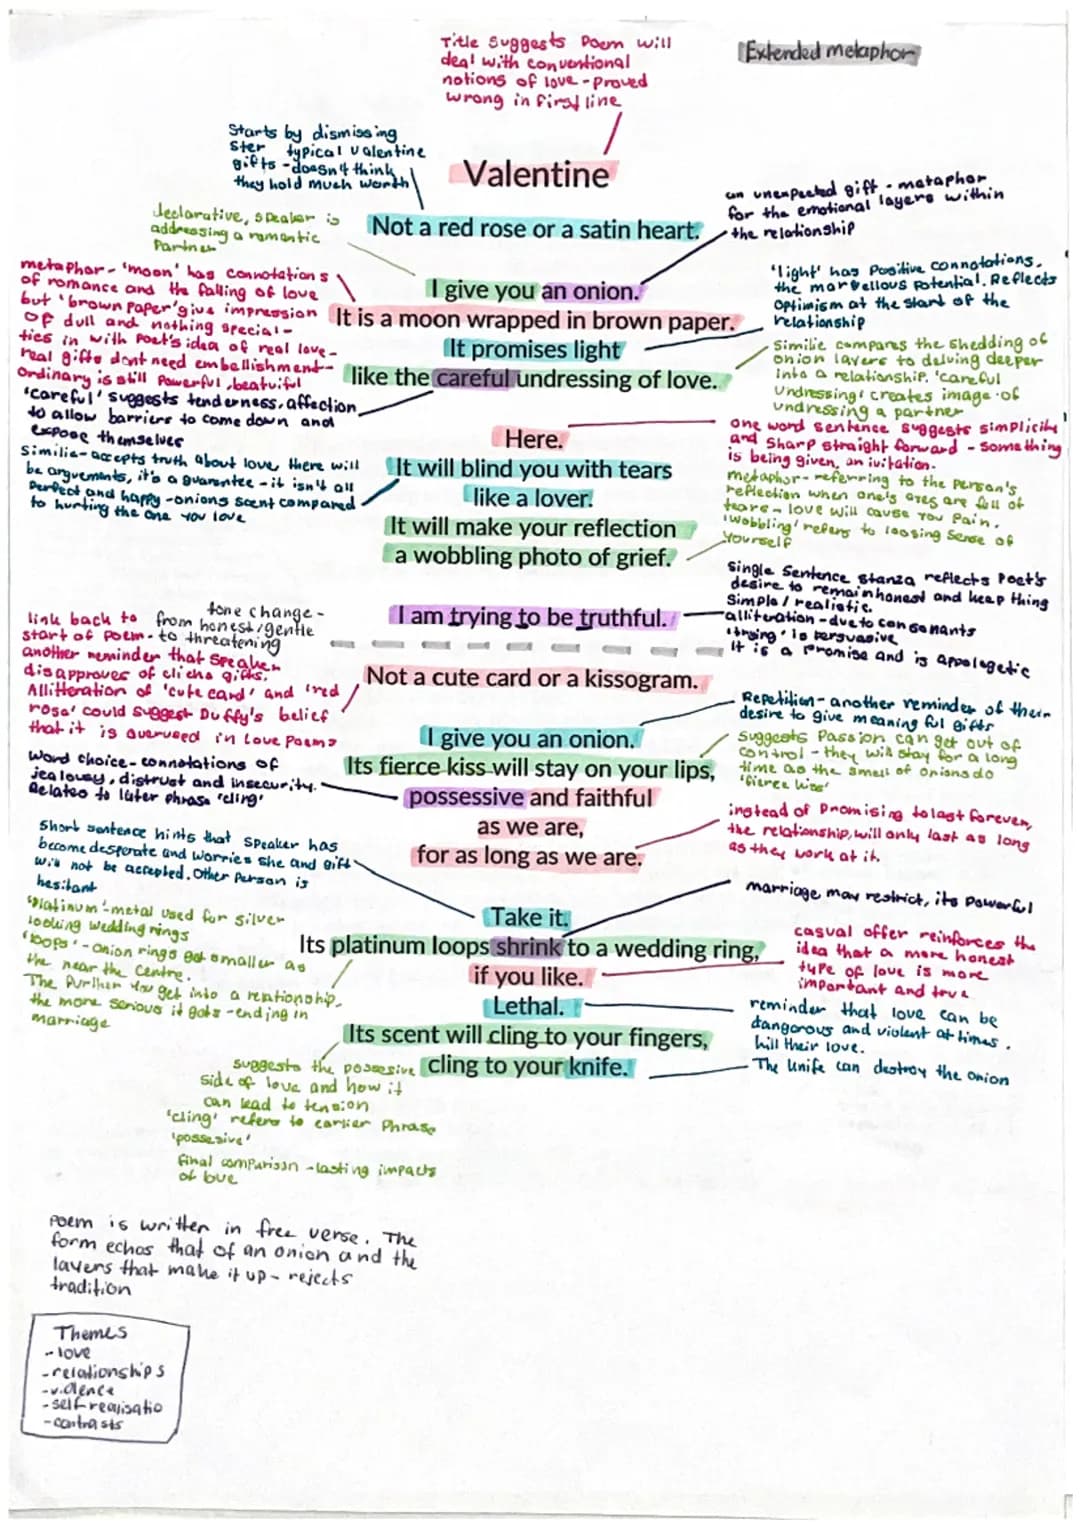 Title Suggests Poem will
deal with conventional
notions of love - proved
wrong in first line
Extended metaphor
Starts by dismissing
ster typical valentine
gifts - doesn't think
they hold much worth
Valentine
an unexpected gift - metaphor
for the emotional layers within
the relationship
declarative, speaker is
addressing a romantic
Partner
Not a red rose or a satin heart.
metaphor - 'moon' has connotations
of romance and the falling of love
but 'brown paper' give impression
of dull and nothing special -
ties in with Poet's idea of real love -
real gifts dont need embellishment -
Ordinary is still Powerful, beatuiful
'careful' suggests tenderness, affection
to allow barriers to come down and
expose themselves
I give you an onion.
It is a moon wrapped in brown paper.
It promises light
like the careful undressing of love.
'light' has Positive connotations,
the marvellous Potential. Reflects
optimism at the start of the
relationship
Similie compares the shedding of
onion layers to delving deeper
into a relationship. 'careful
Undressing' creates image of
undressing a partner
one word sentence suggests simplicity
and sharp straight forward - something
is being given, an ivitation.
Similie - accepts truth about love, there will
be arguements, it's a guarentee - it isn't all
Perfect and happy - onions scent compared
to hurting the one you love
Here.
It will blind you with tears
like a lover.
It will make your reflection
a wobbling photo of grief.
metaphor - referring to the person's
reflection when one's eyes are full of
tears - love will cause you Pain.
'wobbling' refers to loosing sense of
yourself
Single Sentence stanza reflects Poet's
desire to remain honest and keep thing
Simple / realistic.
alliteration - due to consonants
'trying' is persuasive
It is a Promise and is apologetic
I am trying to be truthful.
tone change -
from honest/gentle
to threatening
link back to
start of Poem -
another reminder that Speaker
disapproves of cliche gifts.
Alliteration of 'cute card' and 'red
rose' could suggest Duffy's belief
that it is overused in Love Poems
Not a cute card or a kissogram.
Repetition - another reminder of their
desire to give meaning ful gifts
Suggests Passion can get out of
control - they will stay for a long
time as the smell of onions do
'fierce kiss'
I give you an onion.
Its fierce kiss will stay on your lips,
possessive and faithful
as we are,
for as long as we are.
Word choice - connotations of
jealousy, distrust and insecurity.
Relates to later phrase 'cling'
instead of Promising to last forever,
the relationship will only last as long
as they work at it.
Short sentence hints that Speaker has
become desperate and worries she and gift
will not be accepted. Other Person is
hesitant
marriage may restrict, its Powerful
Take it.
Its platinum loops shrink to a wedding ring,
if you like.
Lethal.
Its scent will cling to your fingers,
cling to your knife.
'Platinum' - metal used for silver
looking wedding rings
'loops' - Onion rings get smaller as
the near the centre.
The further you get into a reationship,
the more serious it gets - ending in
marriage
casual offer reinforces the
idea that a more honest
type of love is more
important and true
reminder that love can be
dangorous and violent at times.
kill their love.
The knife can destroy the onion
suggests the possesive
side of love and how it
can lead to tension
'cling' refers to earlier Phrase
'possesive'
final comparison - lasting impacts
of love
Poem is written in free verse. The
form echos that of an onion and the
layers that make it up - rejects
tradition
Themes
- love
- relationships
- violence
- self-realisatio
- contrasts